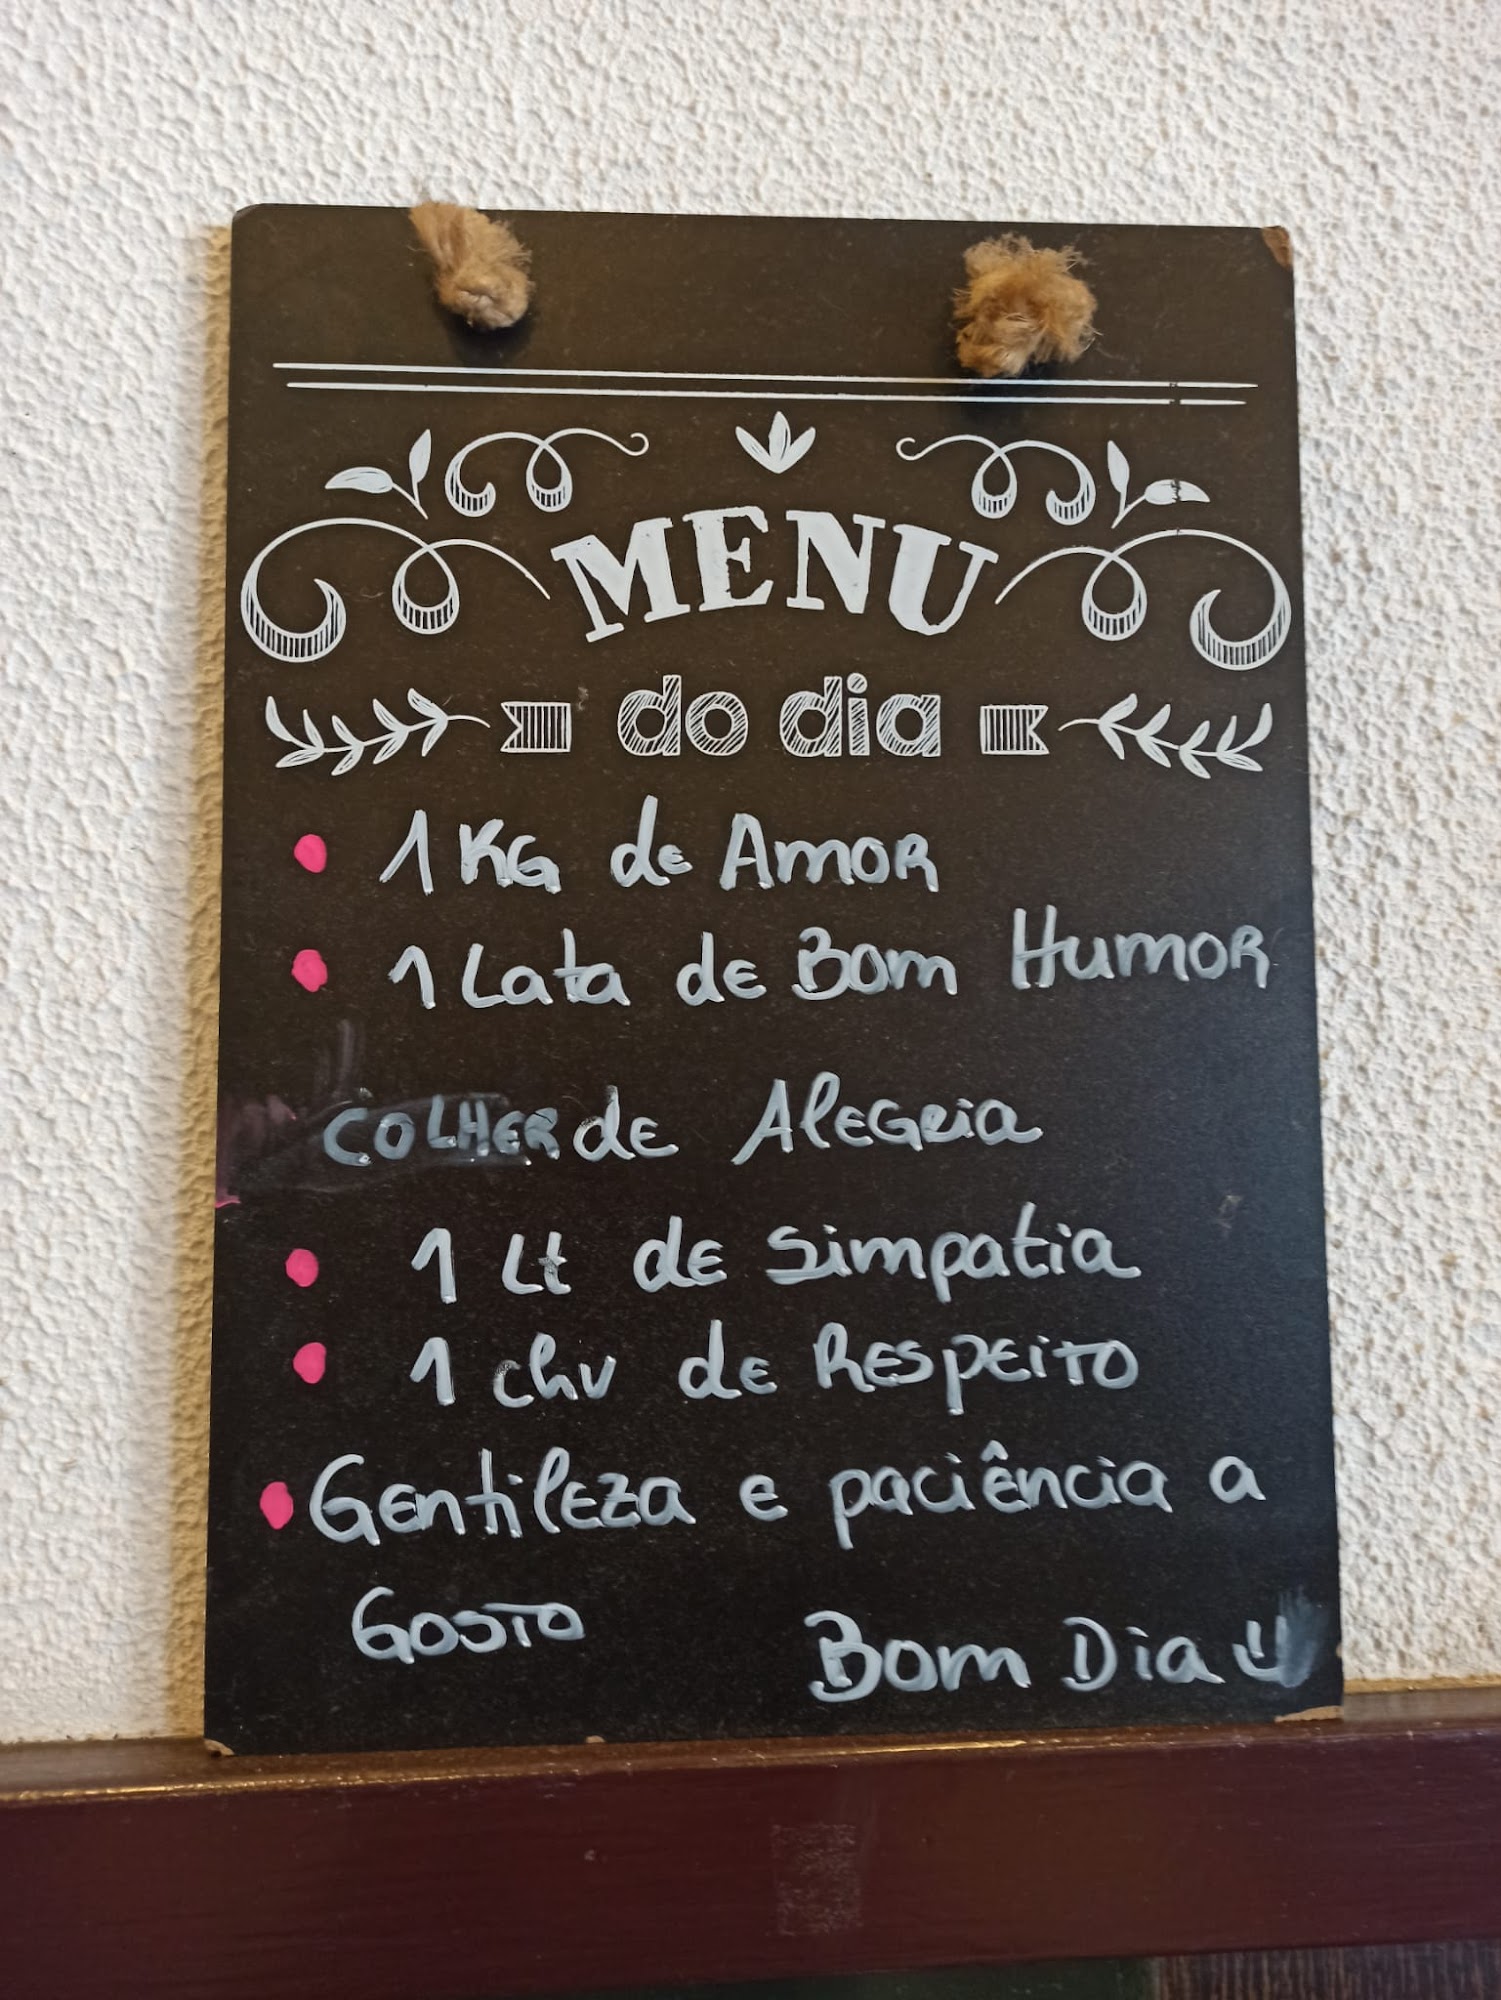 MENU
do dia
1 KG de Amor
1 Lata de Bom Humor
COLHER de Alegria
1 Lt de Simpatia
1 chv de Respeito
Gentileza e paciência a
Gosto
Bom Dia